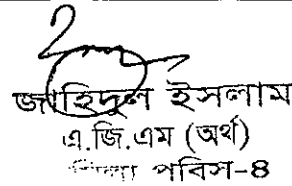 জাহিদুল ইসলাম
এ.জি.এম (অর্থ)
পবিস-৪